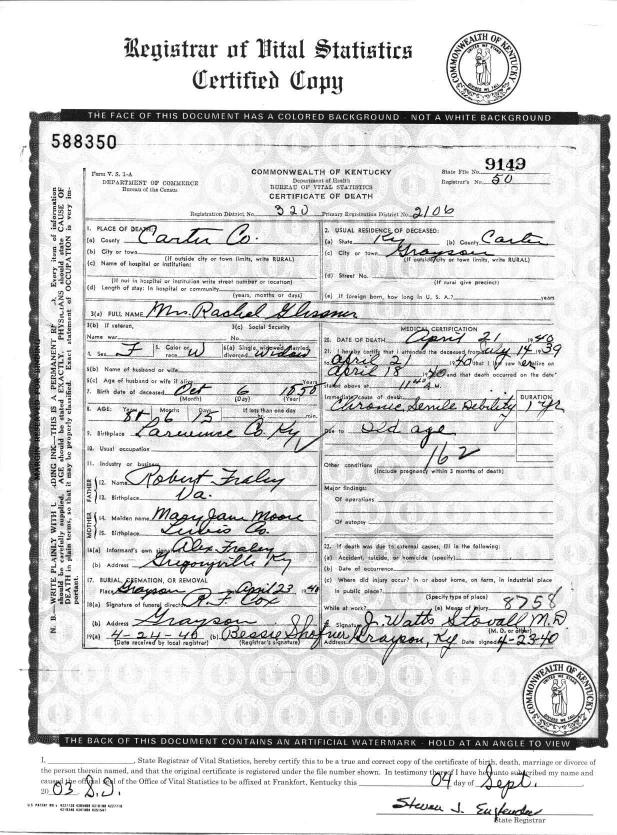 Registrar of Vital Statistics
Certified Copy
COMMONWEALTH OF KENTUCKY
THE FACE OF THIS DOCUMENT HAS A COLORED BACKGROUND · NOT A WHITE BACKGROUND
588350
Form V. S. 1-A
DEPARTMENT OF COMMERCE
Bureau of the Census
COMMONWEALTH OF KENTUCKY
Department of Health
BUREAU OF VITAL STATISTICS
CERTIFICATE OF DEATH
State File No. 9149
Registrar's No. 50
Registration District No. 320 Primary Registration District No. 2106
1. PLACE OF DEATH
(a) County Carter Co.
(b) City or town
(If outside city or town limits, write RURAL)
(c) Name of hospital or institution:
(If not in hospital or institution write street number or location)
(d) Length of stay: In hospital or community
(years, months or days)
2. USUAL RESIDENCE OF DECEASED:
(a) State Ky (b) County Carter
(c) City or town Grayson
(If outside city or town limits, write RURAL)
(d) Street No.
(If rural give precinct)
(e) If foreign born, how long in U. S. A.? years
3(a) FULL NAME Mrs. Rachel
3(b) If veteran, Name war
3(c) Social Security No.
4. Sex F 5. Color or race W 6(a) Single, widowed, married, divorced Widow
6(b) Name of husband or wife
6(c) Age of husband or wife if alive Years
7. Birth date of deceased Oct 6 1850
(Month) (Day) (Year)
8. AGE: Years Months Days If less than one day
89 6 15 hr. min.
9. Birthplace Lawrence Co. Ky
10. Usual occupation
11. Industry or business
FATHER
12. Name Robert Fraley
13. Birthplace Va.
MOTHER
14. Maiden name Mary Jane Moore
15. Birthplace Lewis Co.
16(a) Informant's own signature Alex Fraley
(b) Address Gregoryville Ky
17. BURIAL, CREMATION, OR REMOVAL
Place Grayson April 23, 1940
18(a) Signature of funeral director R. F. Cox
(b) Address Grayson
19(a) 4-24-40 (b) Bessie
(Date received by local registrar) (Registrar's signature)
MEDICAL CERTIFICATION
20. DATE OF DEATH April 21 1940
21. I hereby certify that I attended the deceased from July 14 1939
April 21 1940 that I last saw her alive on
April 18 1940 and that death occurred on the date
stated above at 11 M.
Immediate cause of death DURATION
Chronic Senile Debility 1 yr
Due to Old age
162
Other conditions
(Include pregnancy within 3 months of death)
Major findings:
Of operations
Of autopsy
22. If death was due to external causes, fill in the following:
(a) Accident, suicide, or homicide (specify)
(b) Date of occurrence
(c) Where did injury occur? In or about home, on farm, in industrial place
in public place?
(Specify type of place)
While at work? (e) Means of injury 8758
Signature J. Watts Stovall M.D
(M. D. or other)
Address Grayson, Ky Date signed 4-23-40
COMMONWEALTH OF KENTUCKY
THE BACK OF THIS DOCUMENT CONTAINS AN ARTIFICIAL WATERMARK - HOLD AT AN ANGLE TO VIEW
I, , State Registrar of Vital Statistics, hereby certify this to be a true and correct copy of the certificate of birth, death, marriage or divorce of
the person therein named, and that the original certificate is registered under the file number shown. In testimony thereof I have hereunto subscribed my name and
caused the official seal of the Office of Vital Statistics to be affixed at Frankfort, Kentucky this 04 day of Sept.
20 03
State Registrar